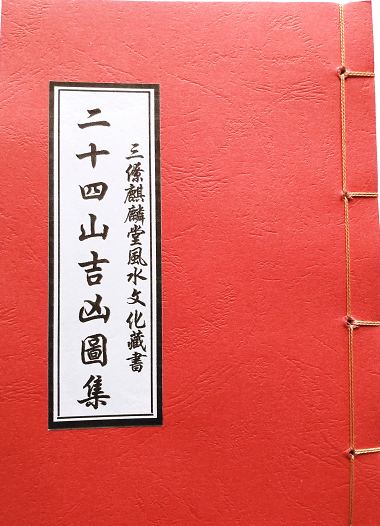 三僚麒麟堂風水文化藏書
二十四山吉凶圖集